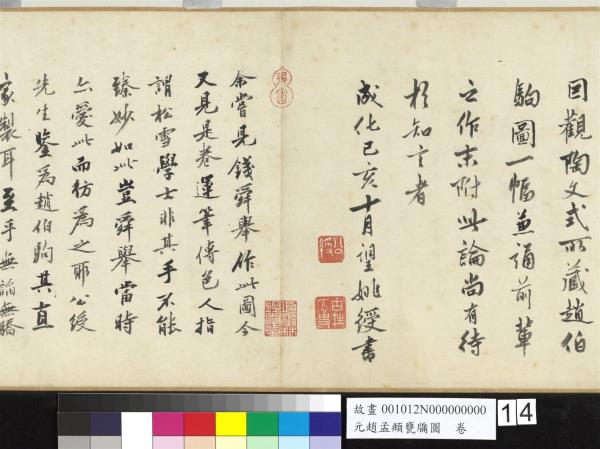 因觀陶文式所藏趙伯
駒圖一幅並前輩
之作末附此論尚有待
於知言者
成化己亥十月望姚綬書
公綬
古柱下史
余嘗見錢舜舉作此圖今
又見是卷運筆傳色人指
謂松雪學士非其手不能
臻妙如此豈舜舉當時
亦愛此而仿為之耶公綬
先生鑒為趙伯駒其直
家製耳至乎無諂無驕
故畫 001012N000000000
元趙孟頫甕牖圖 卷
14